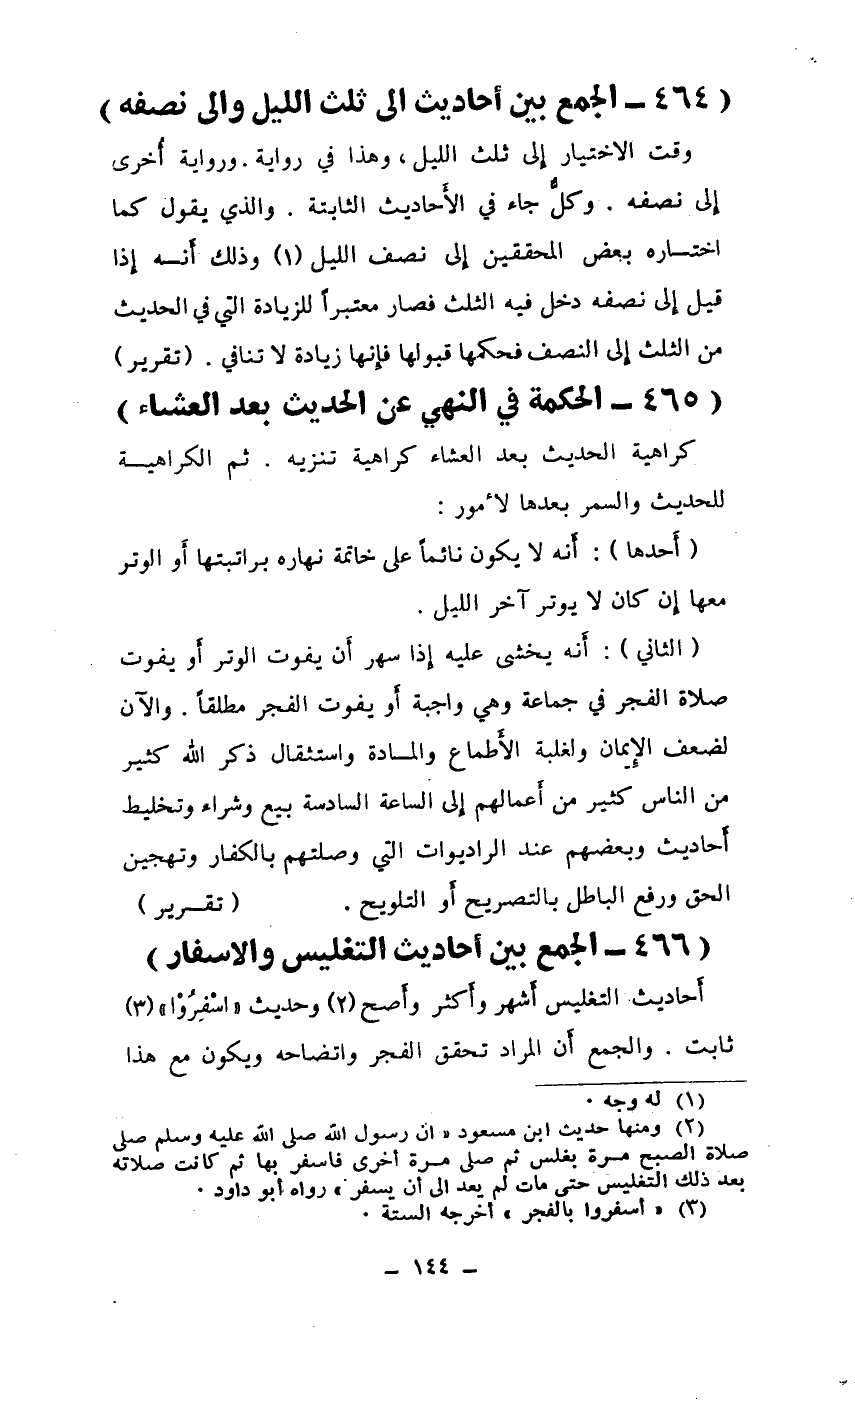 ( ٤٦٤ ــ الجمع بين أحاديث الى ثلث الليل والى نصفه )
وقت الاختيار إلى ثلث الليل ، وهذا في رواية . ورواية أُخرى
إلى نصفه . وكلٌّ جاء في الأَحاديث الثابتة . والذي يقول كما
اختــاره بعض المحققين إلى نصف الليل (١) وذلك أَنــه إذا
قيل إلى نصفه دخل فيه الثلث فصار معتبراً للزيادة التي في الحديث
من الثلث إلى النصف فحكمها قبولها فإنها زيادة لا تنافي . (تقرير)
( ٤٦٥ ــ الحكمة في النهي عن الحديث بعد العشاء )
كراهية الحديث بعد العشاء كراهية تنزيه . ثم الكراهيــة
للحديث والسمر بعدها لأُمور :
( أَحدها ) : أَنه لا يكون نائماً على خاتمة نهاره براتبتها أَو الوتر
معها إن كان لا يوتر آخر الليل .
( الثاني ) : أَنه يخشى عليه إذا سهر أَن يفوت الوتر أَو يفوت
صلاة الفجر في جماعة وهي واجبة أَو يفوت الفجر مطلقاً . والآن
لضعف الإِيمان ولغلبة الأَطماع والمــادة واستثقال ذكر الله كثير
من الناس كثير من أَعمالهم إلى الساعة السادسة بيع وشراء وتخليط
أَحاديث وبعضهم عند الراديوات التي وصلتهم بالكفار وتهجين
الحق ورفع الباطل بالتصريح أَو التلويح . ( تقــرير )
( ٤٦٦ ــ الجمع بين أحاديث التغليس والاسفار )
أَحاديث التغليس أَشهر وأَكثر وأَصح (٢) وحديث « اسْفِرُوْا » (٣)
ثابت . والجمع أَن المراد تحقق الفجر واتضاحه ويكون مع هذا
(١) له وجه .
(٢) ومنها حديث ابن مسعود « ان رسول الله صلى الله عليه وسلم صلى
صلاة الصبح مــرة بغلس ثم صلى مــرة أخرى فاسفر بها ثم كانت صلاته
بعد ذلك التغليس حتى مات لم يعد الى أن يسفر » رواه أبو داود .
(٣) « أسفروا بالفجر » أخرجه الستة .
ــ ١٤٤ ــ